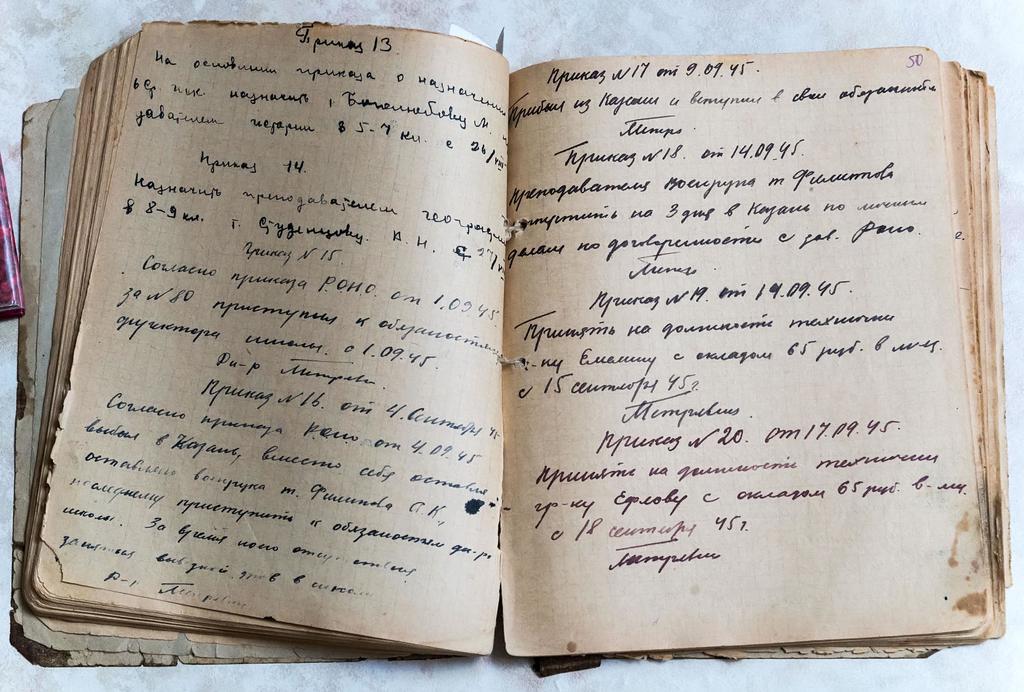 Приказ 13.
На основании приказа о назначении
назначить М.
давателем истории в 5-7 кл. с 26/VIII
Приказ 14.
Назначить преподавателем географии
в 8-9 кл. т. Студенцову А. Н. с 27/VIII
Приказ N 15.
Согласно приказа Р.О.Н.О. от 1.09.45.
за N 80 приступил к обязанностям
директора школы. с 1.09.45.
Ди-р
Приказ N 16. от 4. Сентября 45
Согласно приказа Роно от 4.09.45
выбыл в Казань, вместо себя оставил
оставлено военрука т. Филипова А.К.,
последнему приступить к обязаностям ди-ра
школы. За время моего отсутствия
занятия в школе
Д-р
50
Приказ N 17 от 9.09.45.
Прибыл из Казани и вступил в свои обязанности
Приказ N 18. от 14.09.45.
Преподавателя Военрука т. Филиппова
отпустить на 3 дня в Казань по личным
делам по договоренности с зав. Роно.
Приказ N 19. от 14.09.45.
Принять на должности технички
гр-ку с окладом 65 руб. в м-ц.
с 15 сентября 45 г.
Приказ N 20. от 17.09.45.
Принять на должности технички
гр-ку с окладом 65 руб. в м-ц.
с 18 сентября 45 г.